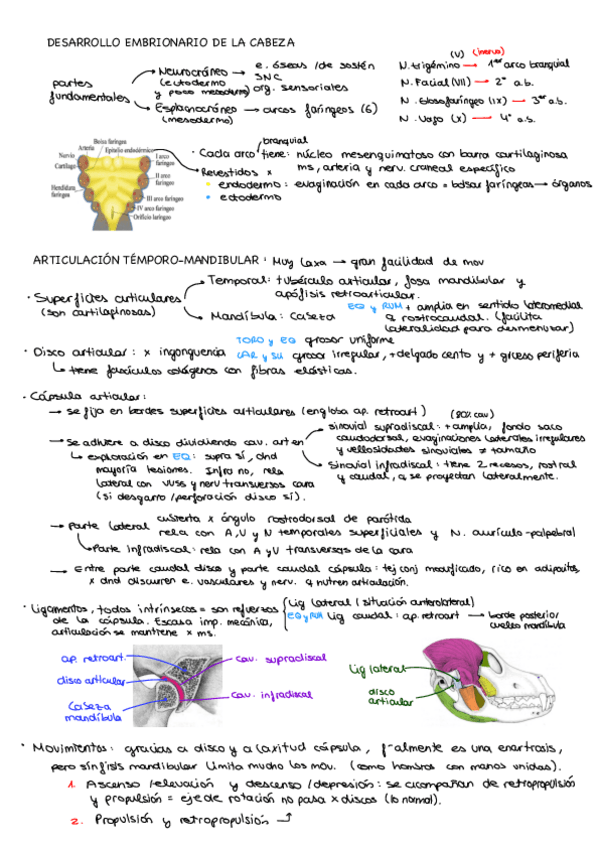 DESARROLLO EMBRIONARIO DE LA CABEZA
partes fundamentales
Neurocráneo → e. óseas / de sostén
(ectodermo y poco mesodermo) SNC
org. sensoriales
Esplacnocráneo → arcos faríngeos (6)
(mesodermo)
(V) (nervo)
N. trigémino → 1er arco branquial
N. Facial (VII) → 2º a.b.
N. Glosofaríngeo (IX) → 3er a.b.
N. Vago (X) → 4º a.b.
Boca faríngea
Arteria
Epitelio endodérmico
Nervio
Cartílago
Hendidura faríngea
I arco faríngeo
II arco faríngeo
III arco faríngeo
IV arco faríngeo
Orificio laríngeo
branquial
· Cada arco tiene: núcleo mesenquimatoso con barra cartilaginosa
ms, arteria y nerv. craneal específico
· Revestidos x
endodermo: evaginación en cada arco = bolsas faríngeas → órganos
ectodermo
ARTICULACIÓN TÉMPORO-MANDIBULAR: Muy laxa → gran facilidad de mov
· Superficies articulares
(son cartilaginosas)
Temporal: tubérculo articular, fosa mandibular y
apófisis retroarticular.
Mandíbula: cabeza
EQ y RUM + amplia en sentido lateromedial
q rostrocaudal. (facilita
lateralidad para desmenuzar)
TORO y EQ grosor uniforme
· Disco articular: x incongruencia CAR y SU grosor irregular, + delgado cento y + grueso periferia
↳ tiene fascículos colágenos con fibras elásticas.
· Cápsula articular:
→ se fija en bordes superficies articulares (engloba ap. retroart)
→ se adhiere a disco dividiendo cav. art en
(80% cav)
sinovial supradiscal: + amplia, fondo saco
caudodorsal, evaginaciones laterales irregulares
y vellosidades sinoviales ≠ tamaño
Sinovial infradiscal: tiene 2 recesos, rostral
y caudal, q se proyectan lateralmente.
↳ exploración en EQ: supra sí, dnd
mayoría lesiones. Infra no, rela
lateral con vvss y nerv transversos cara
(si desgarro/perforación disco sí).
→ Parte lateral cubierta x ángulo rostrodorsal de parótida
rela con A, V y N temporales superficiales y N. aurículo-palpebral
↳ Parte infradiscal: rela con A y V transversas de la cara
→ Entre parte caudal disco y parte caudal cápsula: tej conj modificado, rico en adipocitos,
x dnd discurren e. vasculares y nerv. q nutren articulación.
· Ligamentos, todos intrínsecos = son refuerzos
de la cápsula. Escasa imp. mecánica,
articulación se mantiene x ms.
Lig lateral (situación anterolateral)
EQ y RUM Lig caudal: ap. retroart → borde posterior/
cuello mandíbula
ap. retroart.
disco articular
cabeza mandíbula
cav. supradiscal
cav. infradiscal
Lig lateral
disco articular
· Movimientos: gracias a disco y a laxitud cápsula, f-almente es una enartrosis,
pero sínfisis mandibular limita mucho los mov. (como hombros con manos unidas).
1. Ascenso/elevación y descenso/depresión: se acompañan de retropropulsión
y propulsión = eje de rotación no pasa x discos (lo normal).
2. Propulsión y retropropulsión